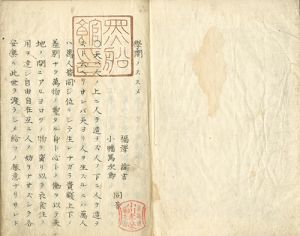 學問ノスヽメ
福澤諭吉
小幡篤次郎 同著
天ハ人ノ上ニ人ヲ造ラズ人ノ下ニ人ヲ造ラ
ズト云ヘリサレバ天ヨリ人ヲ生ズルニハ萬人
ハ萬人皆同ジ位ニシテ生レナガラ貴賤上下ノ
差別ナク萬物ノ靈タル身ト心トノ働ヲ以テ天
地ノ間ニアルヨロヅノ物ヲ資リ以テ衣食住ノ
用ヲ達シ自由自在互ニ人ノ妨ヲナサズシテ各
安樂ニ此世ヲ渡ラシメ給フノ趣意ナリサレド